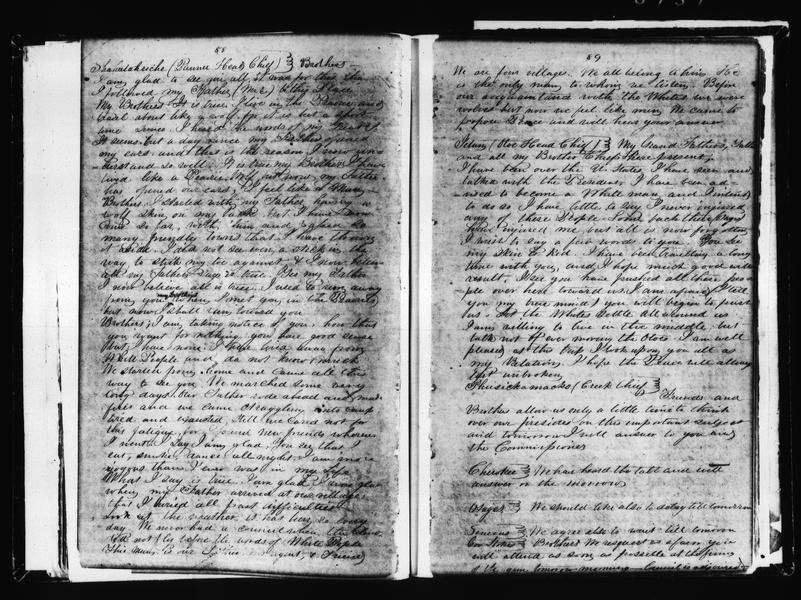 88
(Pawnee Head Chief) } Brothers
I am glad to see you all, it was for this that
I followed my Father to this Place
My Brothers It is true I live in the Prairie and
but about like a wolf for it is but a short
time since I heard the words of my
It seems but a day since my Father opened
my ears and that is the reason I now
so well. It is true my Brothers I have
lived like a Prairie Wolf but now, my Father
has opened our ears, I feel like a Man,
Brothers I started with my Father having a
wolf skin on my back but I have now
come so far, with him and
many friendly towns that I have thrown
it aside. I did not see even a stick on the
way to stub my toe against & I now believe
all my Father says is true. Yes my Father
I now believe all is true. I used to run away
from you my brothers when I met you in the Prairie
but now I shall run toward you
Brothers, I am taking notice of you, how that
you want for nothing you have good sense
but I have none. I have lived away from
White People and do not know much
We started from home and came all this
way to see you We marched some very
long days. Our Father rode ahead and made
fires and we came straggling into camp
tired and exausted. Still we cared not for
this fatigue, for I found new friends wherever
I went I say I am glad. You see that I
eat, smoke, dance all night. I am more
joyous than I ever was in my life
What I say is true. I am glad. I was glad
when my Father arrived at our village
that I buried all past difficulties
look at the weather, it has been so every
day We never had a council when the
did not lie before the words of White People
This Man is our &
89
We are four villages. We all belong to him. He
is the only man to whom we listen. Before
our acquaintance with the Whites we were
wolves but now we feel like men, We came to
propose Peace and will hear your answer
(Otoe Head Chief) } My Grand Fathers, Father
and all my Brother Chiefs here present,
I have been over the U. States, I have seen and
talked with the President, I have been ad-
vised to become a White man and I intend
to do so I have little to say I never injured
any of these People Some back there
have injured me but all is now forgotten
I wish to say a few words to you. You see
my Skin is Red. I have been travelling a long
time with you, and I hope much good will
result. You see you have pushed all these peo-
ple over here toward us. I am afraid I tell
you my true mind you will begin to push
us. Let the Whites Settle All around us
I am willing to live in the middle, but
talk not of ever moving the Otoes I am well
pleased as this trip I look upon you all as
my Relations. I hope the Peace will always
last unbroken
(Creek Chief) }
Friends and
Brothers allow us only a little time to think
over our presides on this important subject
and tomorrow I will answer to you and
the Commissioners
Cherokee } We have heard the talk and will
answer on the morrow
Osages } We should like also to delay till tomorrow
Senecas } We agree also to wait till tomorrow
} Brothers We request as upon you
will attend as soon as possible at the firing
of the gun tomorrow morning — Council is adjourned —